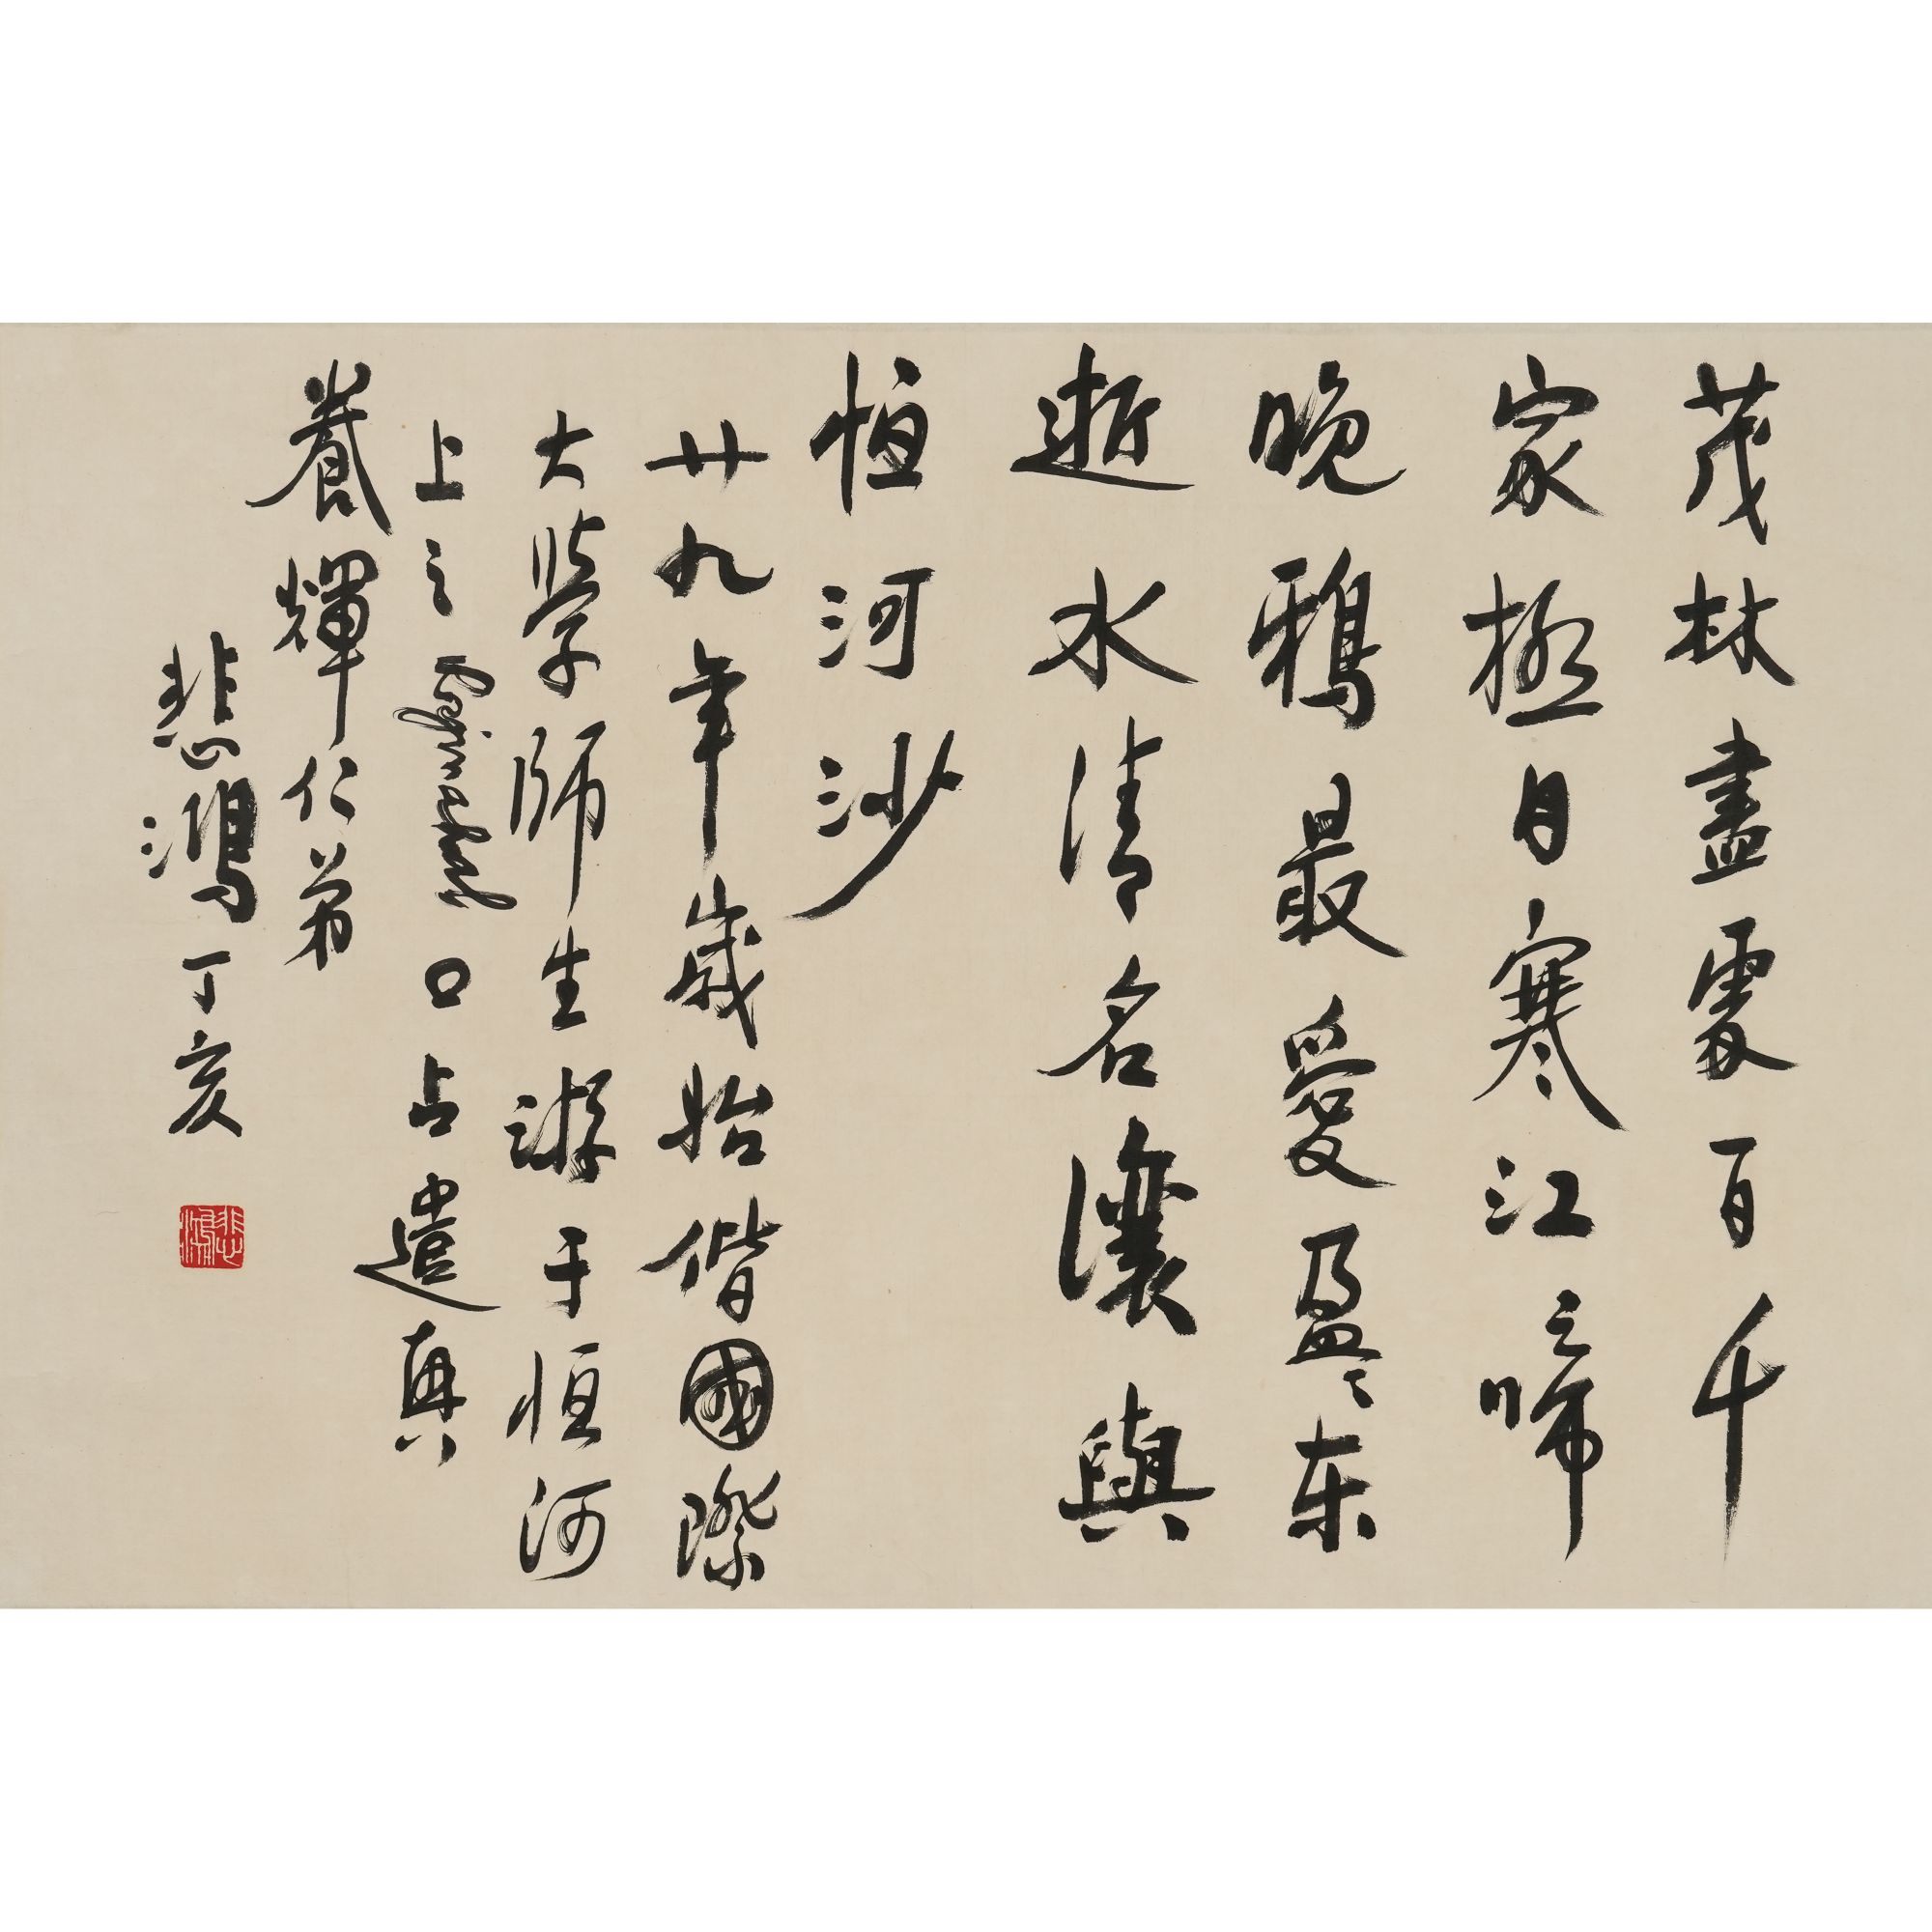 茂林盡處百千
家極目寒江啼
晚鴉最愛盈々东
逝水清名讓與
恒河沙
廿九年歲始偕國際
大學師生游于恒河
上之口占遣興
養輝仁弟
悲鴻丁亥
悲鴻